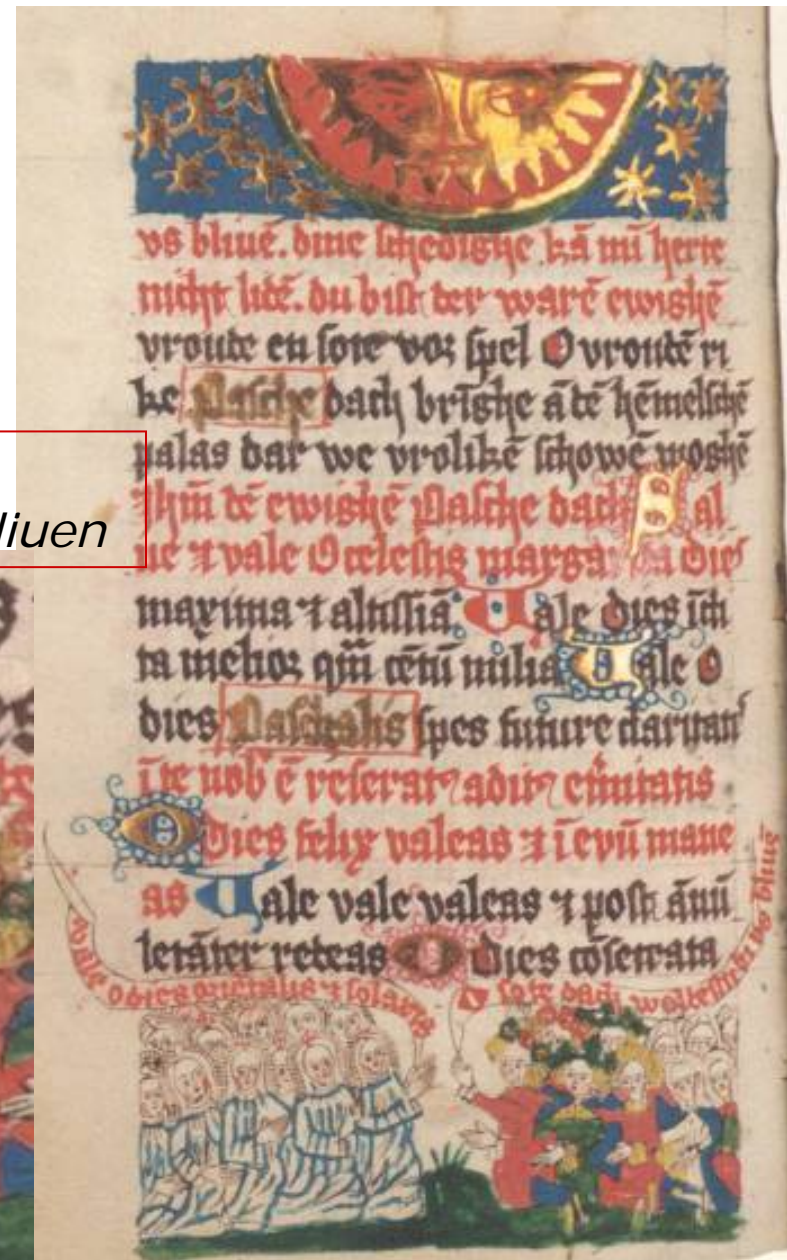 liuen
vs bliuē. dine schedighe kā mī herte
nicht lidē. du bist der warē ewighē
vroude en sote vor spel O vroudē ri
ke Pasche dach brīghe ā dē hēmelschē
palas dar we vrolikē schowē moghē
Ihm dē ewighē Pasche dach Sal
ue ⁊ vale O celestis margarita dies
maxima ⁊ altissīa Uale dies īcli
ta melior qm̄ cētū milia Uale O
dies Paschalis spes future claritatis
ī te nob̄ ē reserat adit ciuitatis
O dies felix valeas ⁊ ī evū mane
as Uale vale valeas ⁊ post ānū
letāter redeas O dies cōsecrata
Vale o dies ⁊ solaris
O sote dach woldestu bi us bliuē